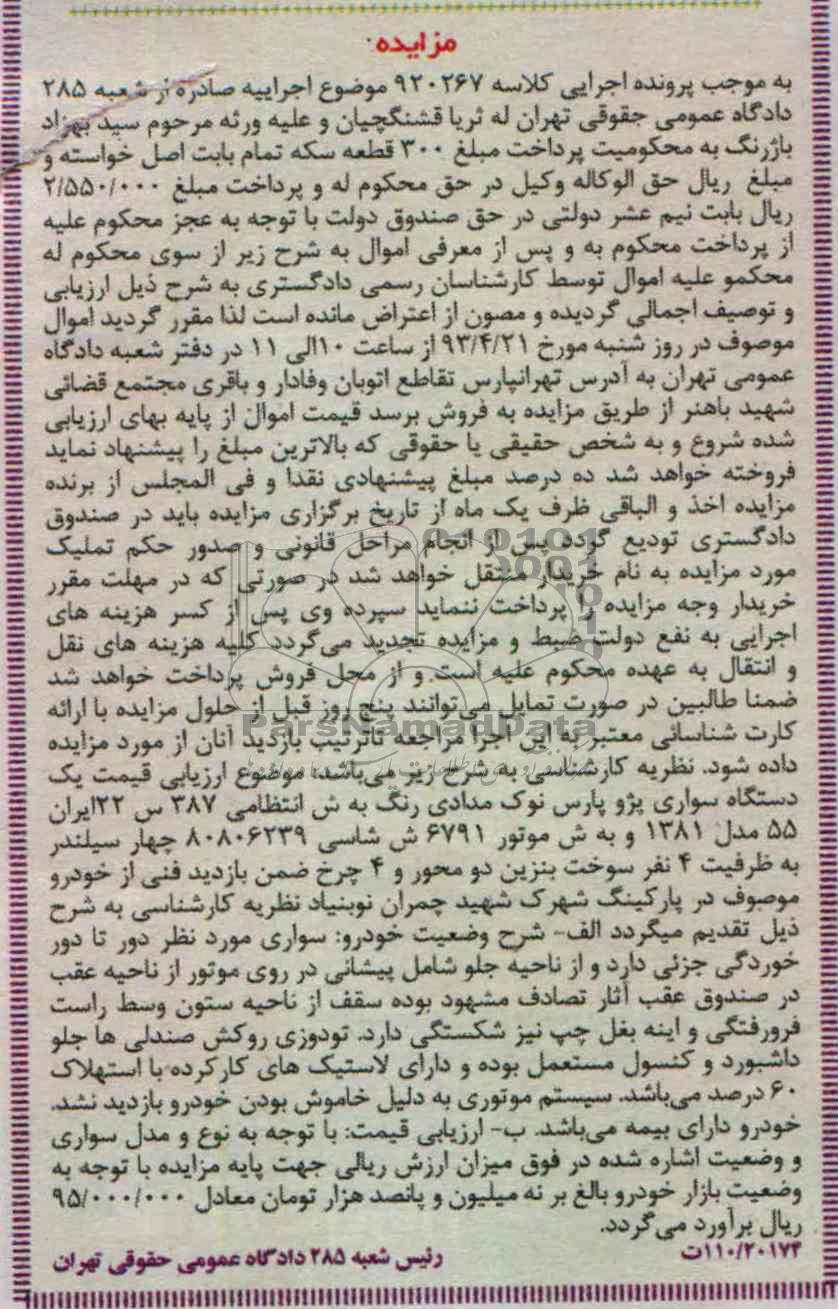 مزایده
به موجب پرونده اجرایی کلاسه ۹۲۰۲۶۷ موضوع اجراییه صادره از شعبه ۲۸۵
دادگاه عمومی حقوقی تهران له ثریا قشنگچیان و علیه ورثه مرحوم سید بهزاد
باژرنگ به محکومیت پرداخت مبلغ ۳۰۰ قطعه سکه تمام بابت اصل خواسته و
مبلغ ریال حق الوکاله وکیل در حق محکوم له و پرداخت مبلغ ۲/۵۵۰/۰۰۰
ریال بابت نیم عشر دولتی در حق صندوق دولت با توجه به عجز محکوم علیه
از پرداخت محکوم به و پس از معرفی اموال به شرح زیر از سوی محکوم له
محکمو علیه اموال توسط کارشناسان رسمی دادگستری به شرح ذیل ارزیابی
و توصیف اجمالی گردیده و مصون از اعتراض مانده است لذا مقرر گردید اموال
موصوف در روز شنبه مورخ ۹۳/۴/۲۱ از ساعت ۱۰الی ۱۱ در دفتر شعبه دادگاه
عمومی تهران به آدرس تهرانپارس تقاطع اتوبان وفادار و باقری مجتمع قضائی
شهید باهنر از طریق مزایده به فروش برسد قیمت اموال از پایه بهای ارزیابی
شده شروع و به شخص حقیقی یا حقوقی که بالاترین مبلغ را پیشنهاد نماید
فروخته خواهد شد ده درصد مبلغ پیشنهادی نقدا و فی المجلس از برنده
مزایده اخذ و الباقی ظرف یک ماه از تاریخ برگزاری مزایده باید در صندوق
دادگستری تودیع گرده پس از انجام مراحل قانونی و صدور حکم تملیک
مورد مزایده به نام خریدار منتقل خواهد شد در صورتی که در مهلت مقرر
خریدار وجه مزایده را پرداخت ننماید سپرده وی پس از کسر هزینه های
اجرایی به نفع دولت ضبط و مزایده تجدید می‌گردد کلیه هزینه های نقل
و انتقال به عهده محکوم علیه است و از محل فروش پرداخت خواهد شد
ضمنا طالبین در صورت تمایل می‌توانند پنج روز قبل از حلول مزایده با ارائه
کارت شناسائی معتبر به این اجرا مراجعه تاترتیب بازدید آنان از مورد مزایده
داده شود. نظریه کارشناسی به شرح زیر می‌باشد: موضوع ارزیابی قیمت یک
دستگاه سواری پژو پارس نوک مدادی رنگ به ش انتظامی ۳۸۷ س ۲۲ایران
۵۵ مدل ۱۳۸۱ و به ش موتور ۶۷۹۱ ش شاسی ۸۰۸۰۶۲۳۹ چهار سیلندر
به ظرفیت ۴ نفر سوخت بنزین دو محور و ۴ چرخ ضمن بازدید فنی از خودرو
موصوف در پارکینگ شهرک شهید چمران نوبنیاد نظریه کارشناسی به شرح
ذیل تقدیم میگردد الف- شرح وضعیت خودرو: سواری مورد نظر دور تا دور
خوردگی جزئی دارد و از ناحیه جلو شامل پیشانی در روی موتور از ناحیه عقب
در صندوق عقب آثار تصادف مشهود بوده سقف از ناحیه ستون وسط راست
فرورفتگی و اینه بغل چپ نیز شکستگی دارد. تودوزی روکش صندلی ها جلو
داشبورد و کنسول مستعمل بوده و دارای لاستیک های کارکرده با استهلاک
۶۰ درصد می‌باشد. سیستم موتوری به دلیل خاموش بودن خودرو بازدید نشد.
خودرو دارای بیمه می‌باشد. ب- ارزیابی قیمت: با توجه به نوع و مدل سواری
و وضعیت اشاره شده در فوق میزان ارزش ریالی جهت پایه مزایده با توجه به
وضعیت بازار خودرو بالغ بر نه میلیون و پانصد هزار تومان معادل ۹۵/۰۰۰/۰۰۰
ریال برآورد می‌گردد.
۱۱۰/۲۰۱۷۴ت رئیس شعبه ۲۸۵ دادگاه عمومی حقوقی تهران
ParsNamadData